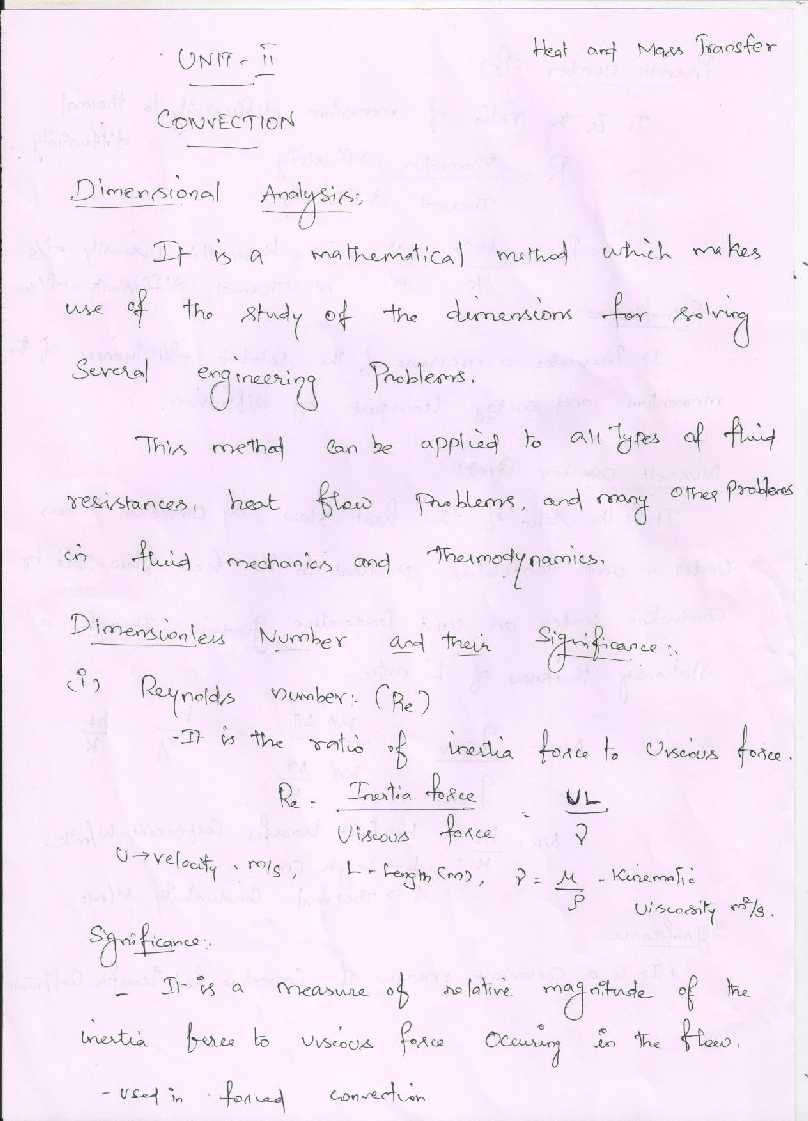 Heat and Mass Transfer
UNIT - II
CONVECTION
Dimensional Analysis:
It is a mathematical method which makes
use of the study of the dimensions for solving
Several engineering Problems.
This method can be applied to all Types of fluid
resistances, heat flow Problems, and many other problems
in fluid mechanics and Thermodynamics.
Dimensionless Number and their Significance:
(i) Reynolds number: (Re)
- It is the ratio of inertia force to Viscous force.
Re = Inertia force / Viscous force = UL / ν
U → velocity, m/s, L - Length (m), ν = μ / ρ - Kinematic
Viscosity m²/s.
Significance:
- It is a measure of relative magnitude of the
inertia force to viscous force Occuring in the flow.
- Used in forced convection